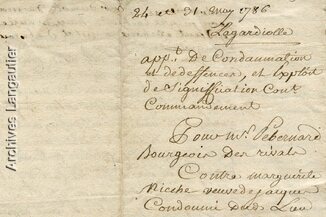 24 et 31. May 1786
Lagardiolle
app.t De Condamnation
et de deffences, et Exploit
de Signiffication Cont.t
Commandement
Pour Mr. Pebernard
Bourgeois Des rivals
Contre marguerite
Micche veuve de jacques
Condomi dud. Lieu
Archives Langautier